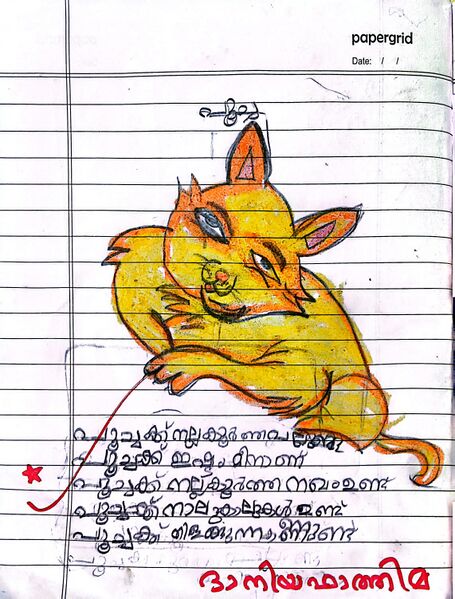 papergrid
Date: / /
പൂച്ച
പൂച്ചക്ക് നല്ലകൂർത്തപല്ലുണ്ടു
പൂച്ചക്ക് ഇഷ്ടം മീനാണ്
പൂച്ചക്ക് നല്ലകൂർത്ത നഖംഉണ്ട്
പൂച്ചക്ക് നാലുകാലുകൾ ഉണ്ട്
പൂച്ചക്ക് തിളക്കുന്നകണ്ണുണ്ട്
ദാനിയഫാത്തിമ